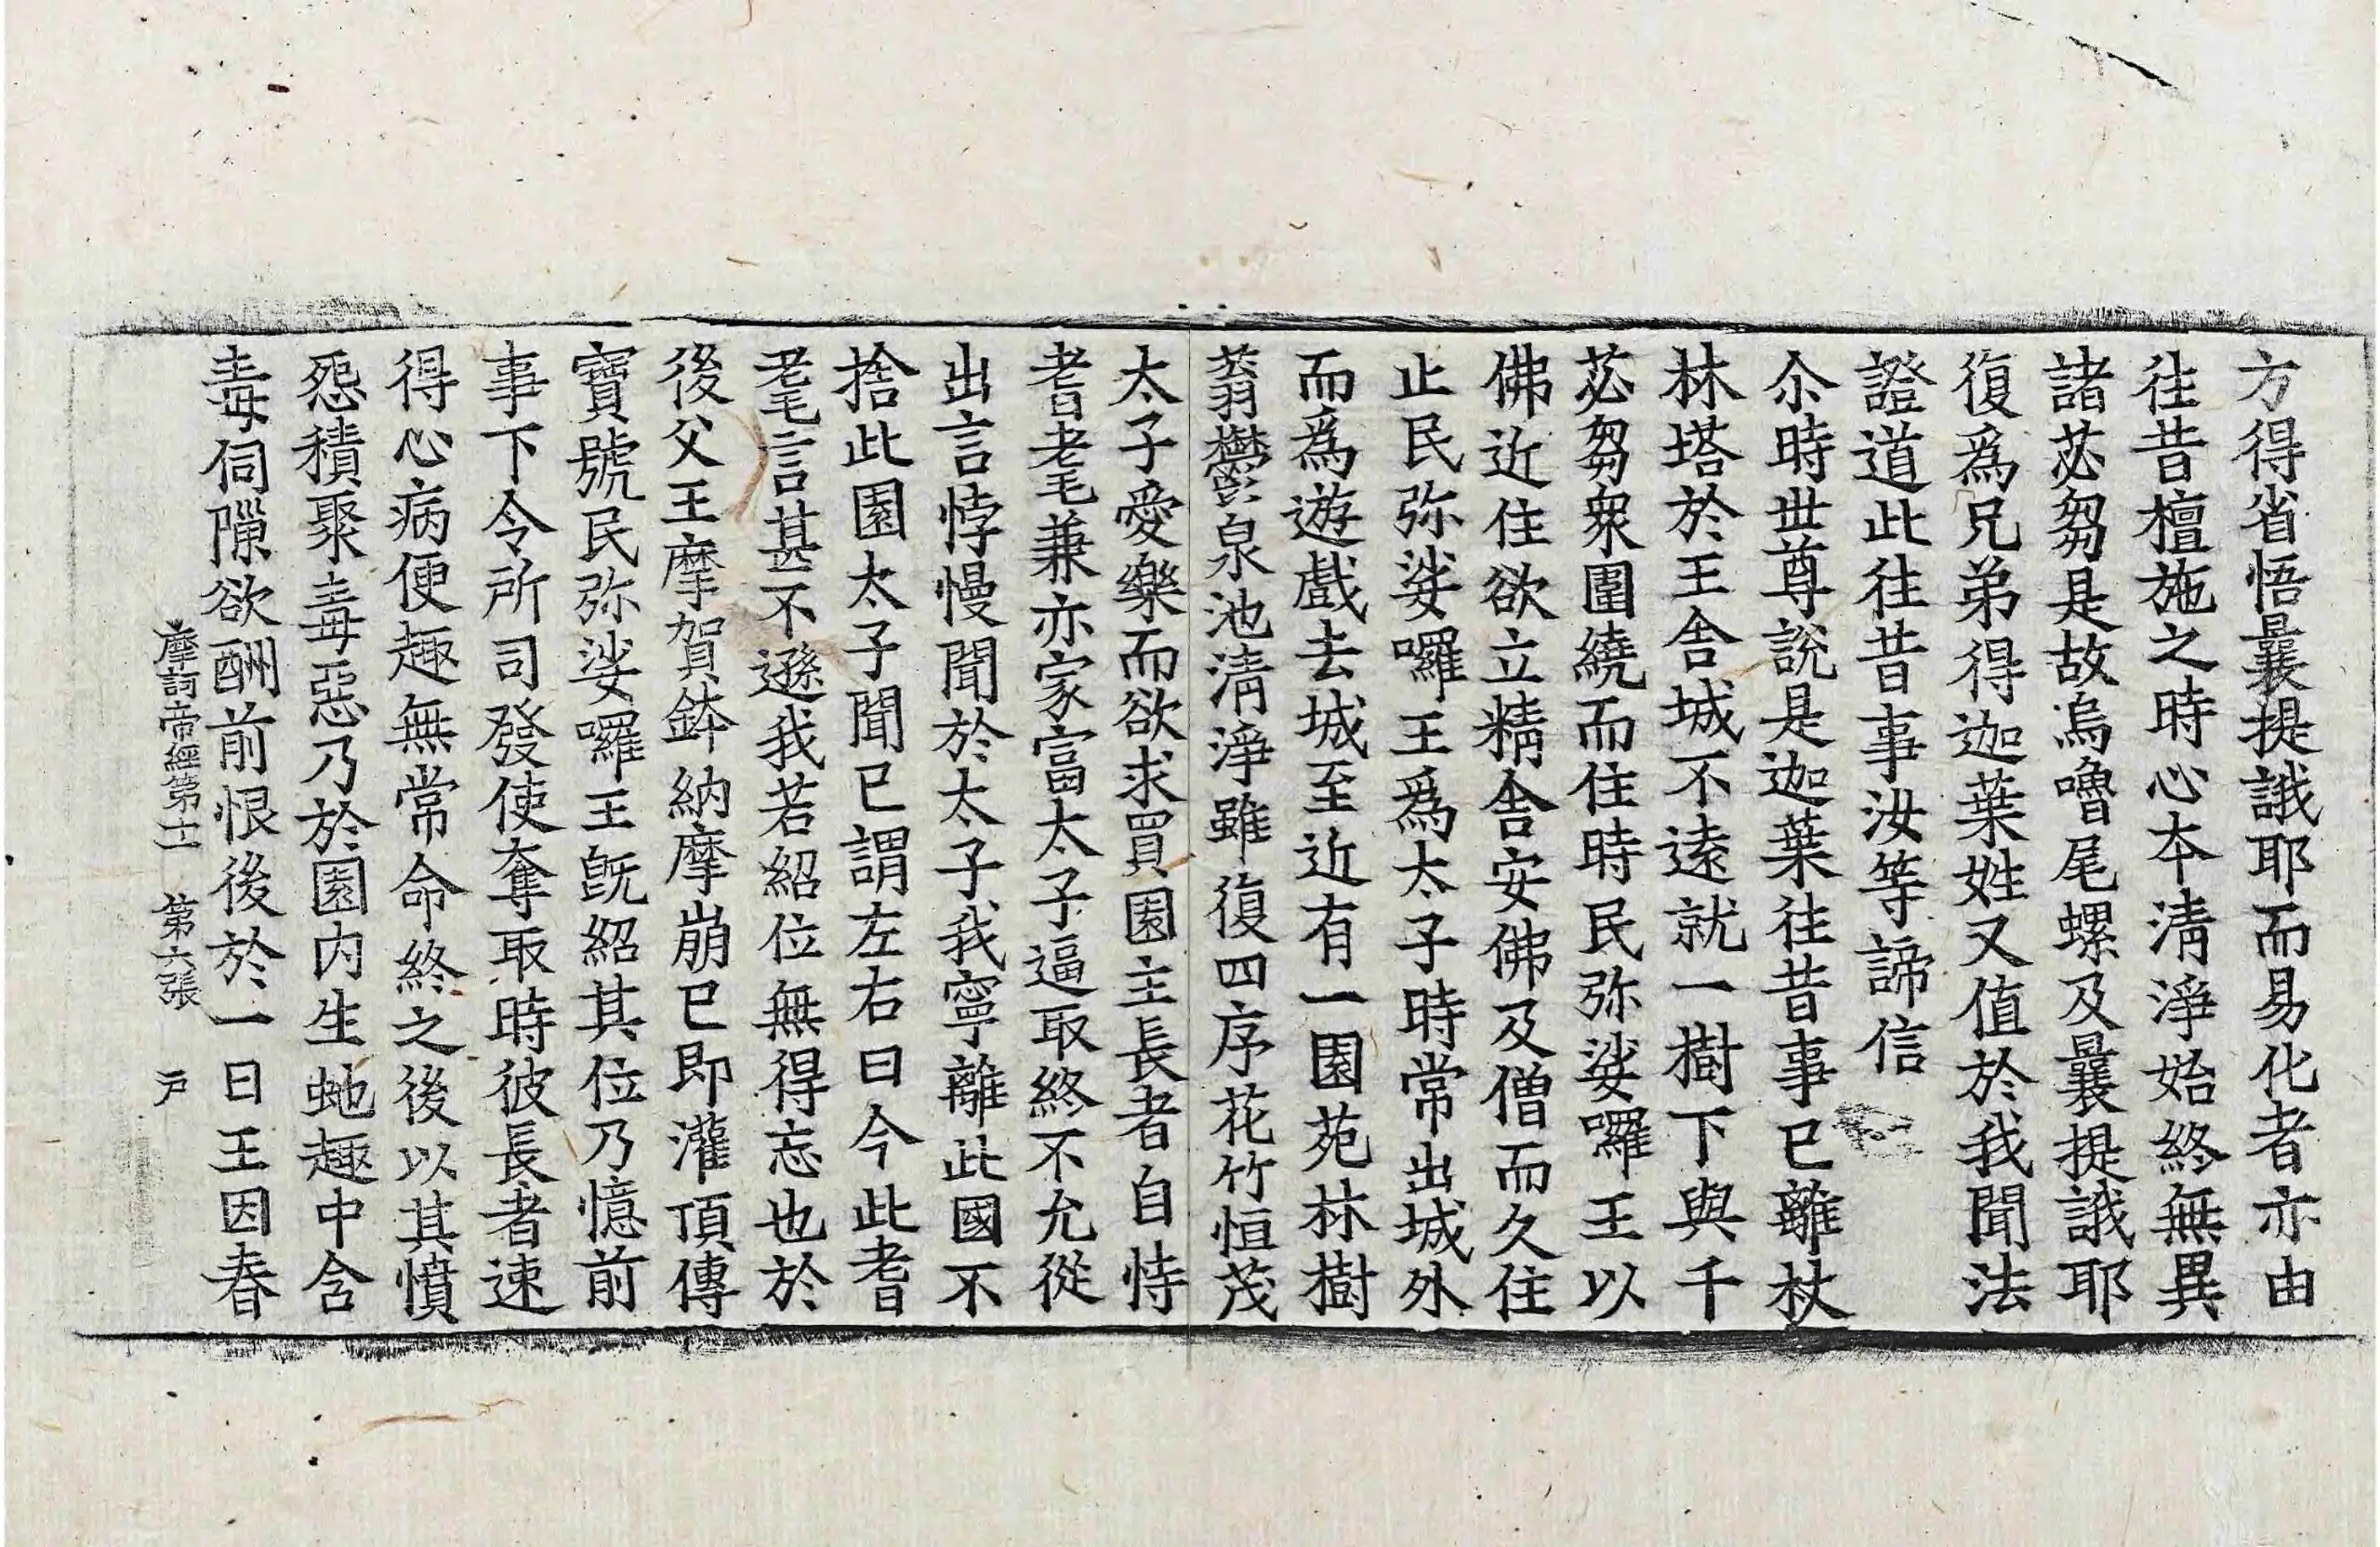 方得省悟曩提誐耶而易化者亦由
往昔檀施之時心本清淨始終無異
諸苾芻是故烏嚕尾螺及曩提誐耶
復爲兄弟得迦葉姓又值於我聞法
證道此往昔事汝等諦信
尒時世尊說是迦葉往昔事已離杖
林塔於王舍城不遠就一樹下與千
苾芻衆圍繞而住時民弥娑囉王以
佛近住欲立精舍安佛及僧而久住
止民弥娑囉王爲太子時常出城外
而爲遊戲去城至近有一園苑林樹
蓊鬱泉池清淨雖復四序花竹恒茂
太子愛樂而欲求買園主長者自恃
耆耄兼亦家富太子逼取終不允從
出言悖慢聞於太子我寧離此國不
捨此園太子聞已謂左右曰今此耆
耄言甚不遜我若紹位無得忘也於
後父王摩賀鉢納摩崩已即灌頂傳
寶號民弥娑囉王旣紹其位乃憶前
事下令所司發使奪取時彼長者速
得心病便趣無常命終之後以其憤
怨積聚毒惡乃於園内生虵趣中含
毒伺隟欲酬前恨後於一日王因春
摩訶帝經第十一 第六張 戶